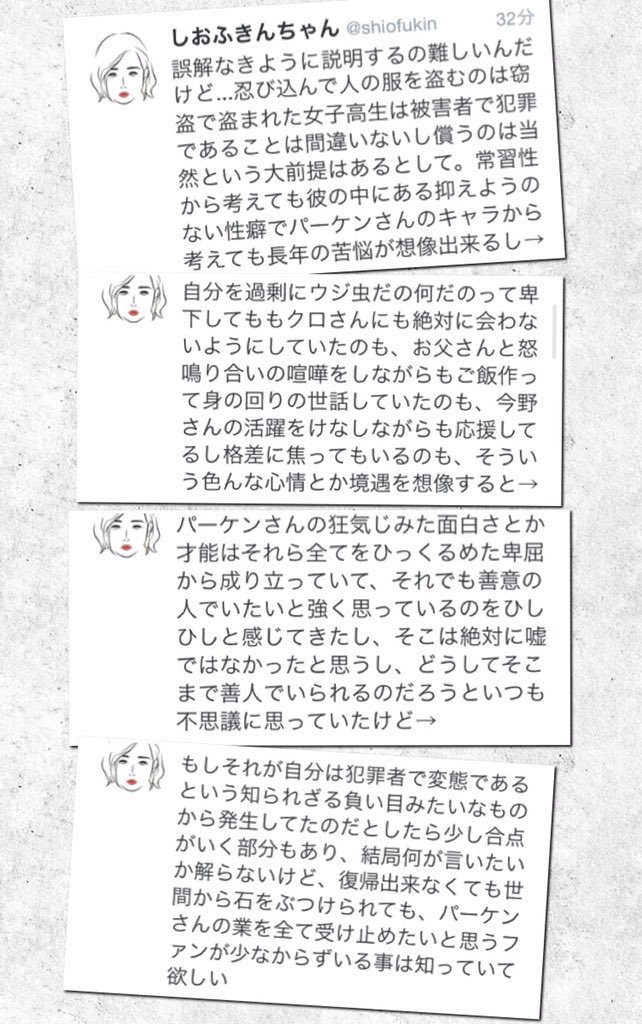 しおふきんちゃん @shiofukin 32分
誤解なきように説明するの難しいんだ
けど...忍び込んで人の服を盗むのは窃
盗で盗まれた女子高生は被害者で犯罪
であることは間違いないし償うのは当
然という大前提はあるとして。常習性
から考えても彼の中にある抑えようの
ない性癖でパーケンさんのキャラから
考えても長年の苦悩が想像出来るし→
自分を過剰にウジ虫だの何だのって卑
下してももクロさんにも絶対に会わな
いようにしていたのも、お父さんと怒
鳴り合いの喧嘩をしながらもご飯作っ
て身の回りの世話していたのも、今野
さんの活躍をけなしながらも応援して
るし格差に焦ってもいるのも、そうい
う色んな心情とか境遇を想像すると→
パーケンさんの狂気じみた面白さとか
才能はそれら全てをひっくるめた卑屈
から成り立っていて、それでも善意の
人でいたいと強く思っているのをひし
ひしと感じてきたし、そこは絶対に嘘
ではなかったと思うし、どうしてそこ
まで善人でいられるのだろうといつも
不思議に思っていたけど→
もしそれが自分は犯罪者で変態である
という知られざる負い目みたいなもの
から発生してたのだとしたら少し合点
がいく部分もあり、結局何が言いたい
か解らないけど、復帰出来なくても世
間から石をぶつけられても、パーケン
さんの業を全て受け止めたいと思うフ
ァンが少なからずいる事は知っていて
欲しい